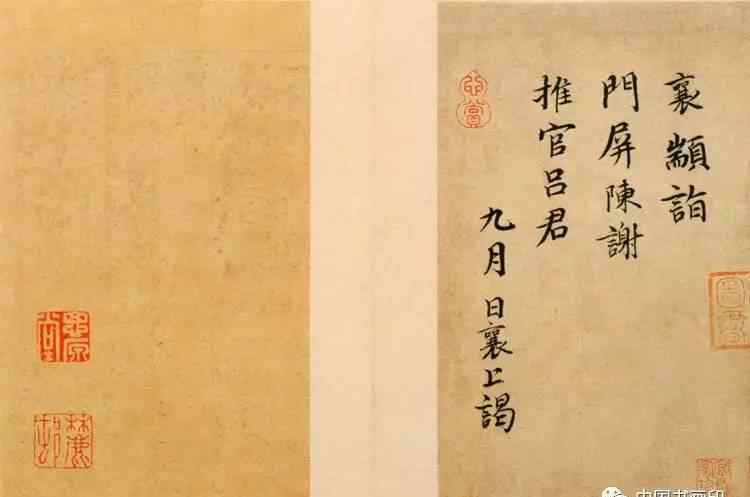 襄顓詣
門屏陳謝
推官呂君
九月 日襄上謁
中国书画印